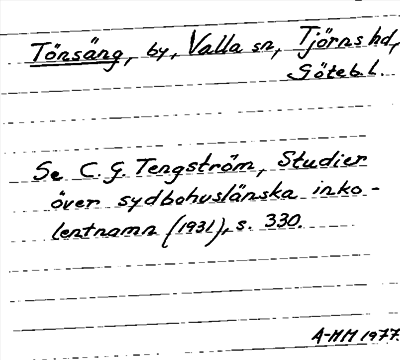 Tönsäng, by, Valla sn, Tjörns hd,
Göteb.l.
Se C. G. Tengström, Studier
över sydbohuslänska inko-
lentnamn (1931), s. 330.
A-MM 1977.